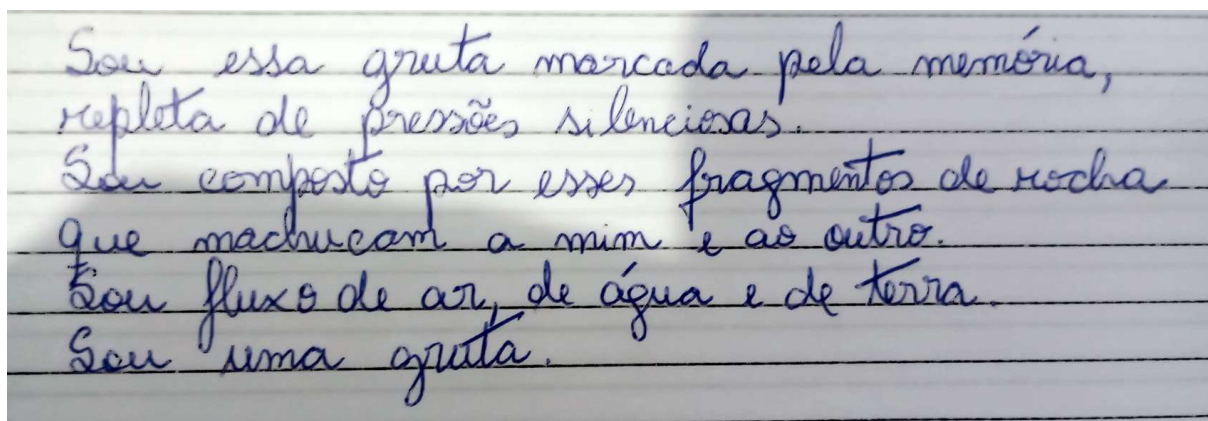 Sou essa gruta marcada pela memória,
repleta de pressões silenciosas.
Sou composto por esses fragmentos de rocha
que machucam a mim e ao outro.
Sou fluxo de ar, de água e de terra.
Sou uma gruta.